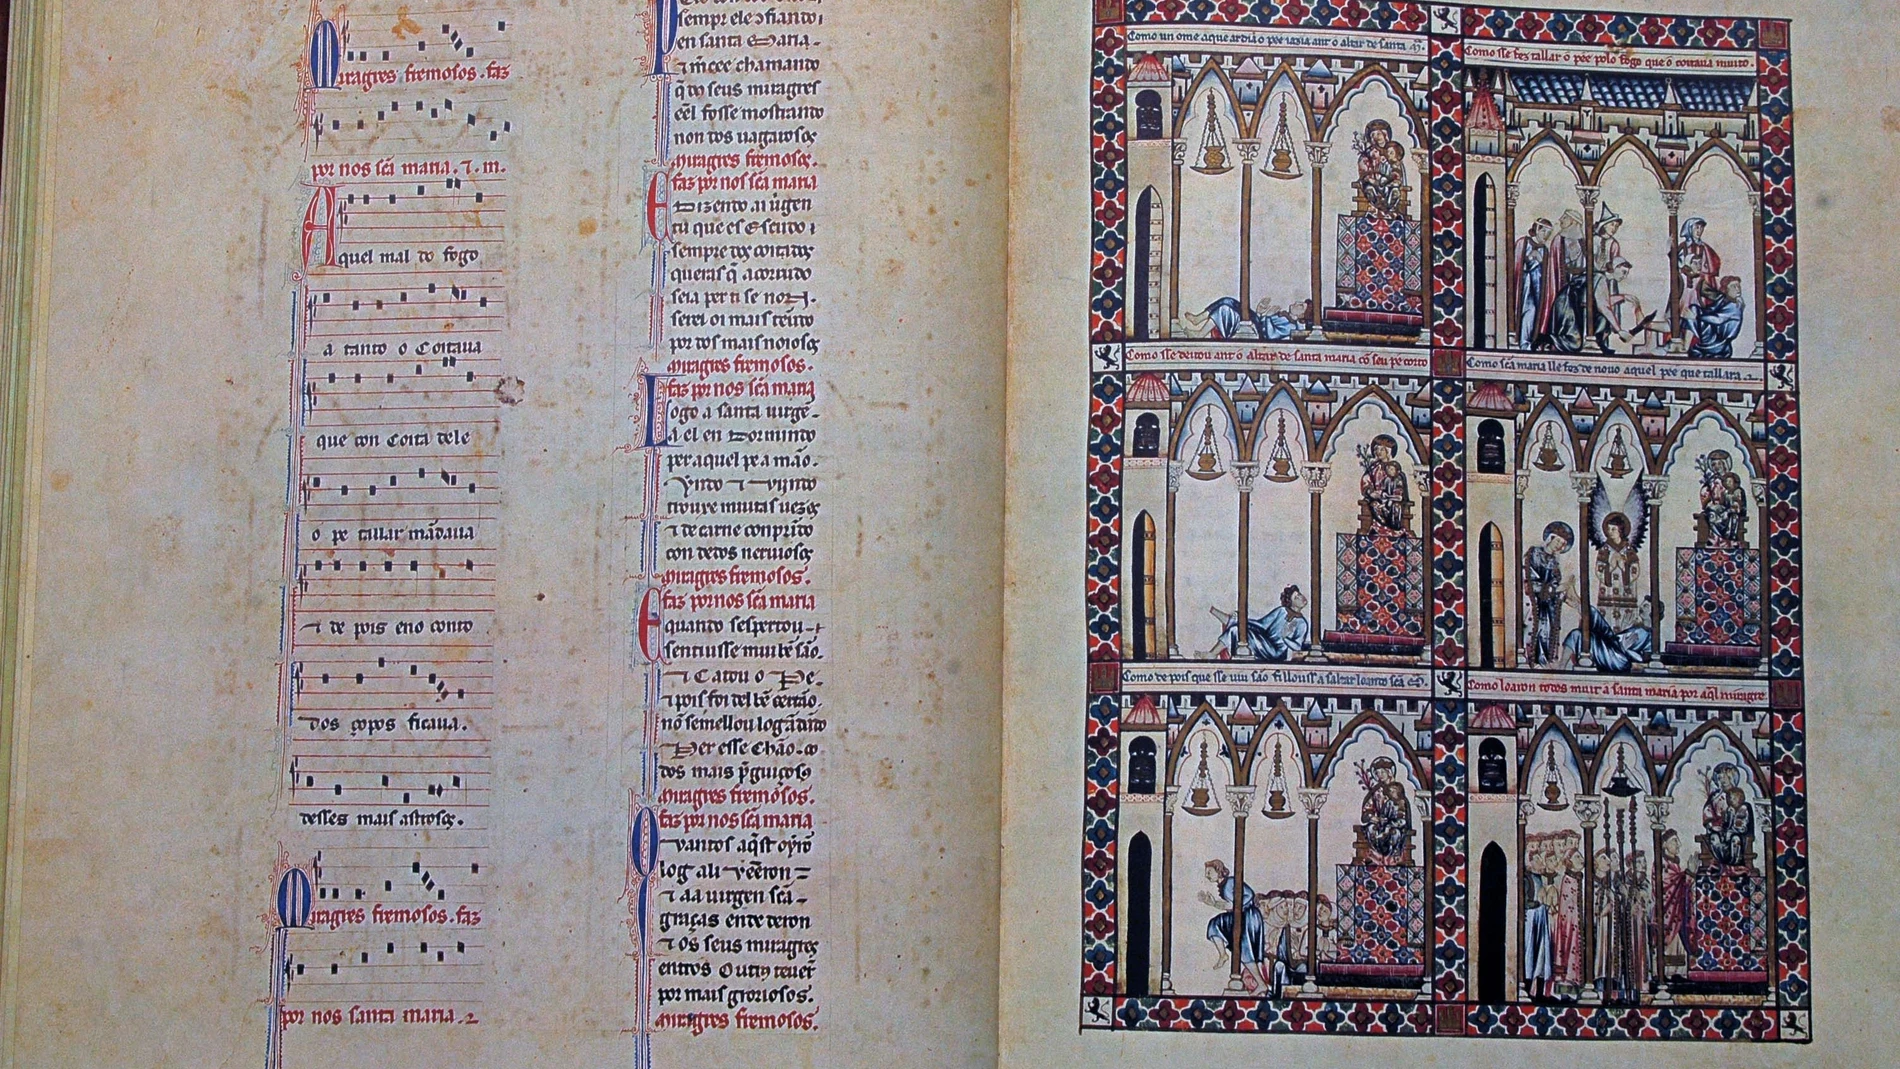 Miragres fremosos. faz
por nos sc̃a maria. ⁊. m.
Aquel mal do fogo
a tanto o Coitaua
que con Coita dele
o pe tallar mãdaua
⁊ de pois eno conto
dos çopos ficaua.
desses mais astrosos.
Miragres fremosos. faz
por nos santa maria. ⁊
sempr ele Ɔfiando
en santa Maria.
⁊ m̃cee chamando
q̃ dos seus miragres
eel fosse mostrando
non dos uagarosos
Miragres fremosos.
faz por nos sc̃a maria
E Dizendo ai uirgen
tu que es Escudo
sempre dos coitados
queras q̃ acorrudo
seia per ti se non.
serei oi mais tẽudo
por dos mais noiosos
Miragres fremosos.
faz por nos sc̃a maria
Logo a santa uirgẽ
a el en Dormindo
per aquel pe a mão.
Yndo ⁊ uĩjndo
trouxe muitas uezes
⁊ de carne conprĩdo
con dedos neruiosos
Miragres fremosos.
faz por nos sc̃a maria
E quando sespertou
sentiusse mui bẽ são.
⁊ Catou o Pe.
⁊ pois foi del bẽ certão.
nõ semellou log ãdãdo
Per esse Chão.
dos mais p̃guiçosos
Miragres fremosos.
faz por nos sc̃a maria
Quantos aq̃st oyrõ
log ali Vẽeron
⁊ aa uirgen sc̃a
graças ende deron
⁊ os seus miragres
entros Outros teuerõ
por mais gloriosos.
Miragres fremosos.
Como un ome a que ardia o pee iazia ant o altar de santa m̃.
Como sse fez tallar o pee polo fogo que o coitaua muito.
Como sse deitou ant o altar de santa maria cõ seu pe corto
Como sc̃a maria lle fez de nouo aquel pee que tallara
Como de pois que sse uiu são fillouss a saltar loando sc̃a m̃.
Como loaron todos muit a santa maria por aq̃l miragre.